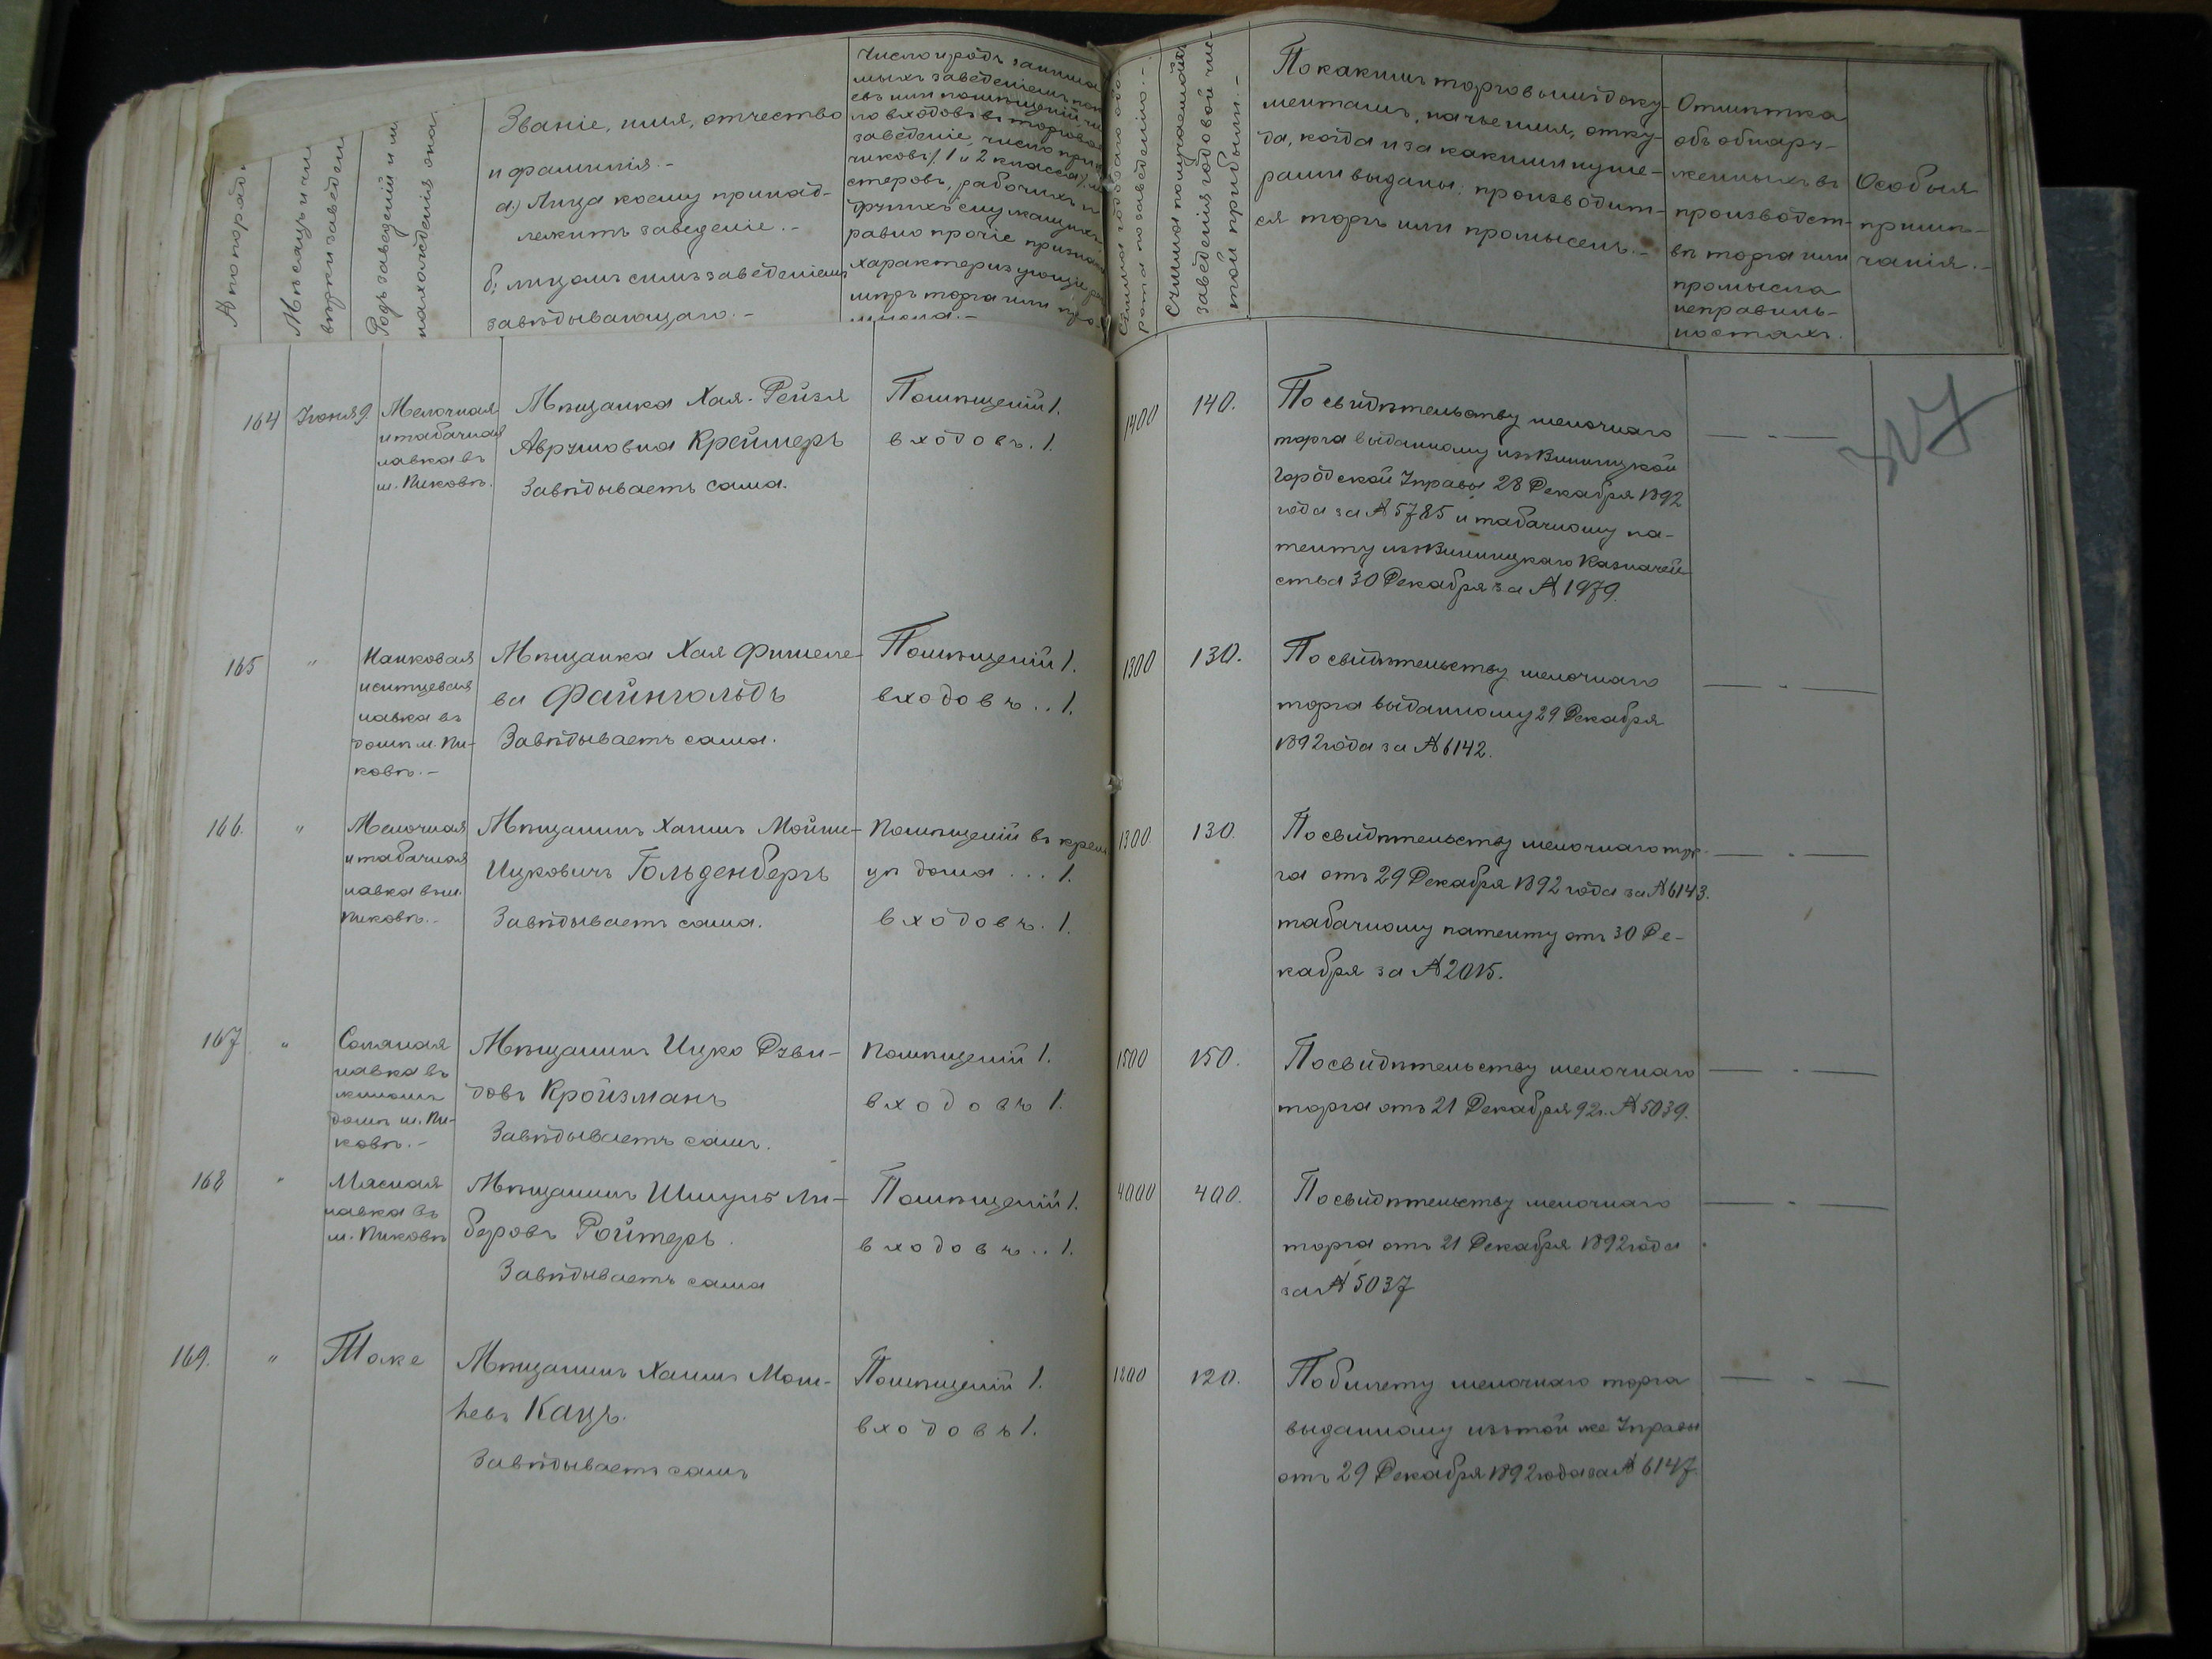 № по поряд
Мѣсяцъ и чи
вѣрки заведені
Родъ заведеній и м
нахожденія онаг
Званіе, имя, отчество
и фамилія.-
а) Лица коему принад-
лежитъ заведеніе.-
б) лицомъ симъ заведеніемъ
завѣдывающаго.-
Число и родъ занима
мыхъ заведеніемъ
евъ или помѣщеній чи
ло входовъ въ торговое
заведеніе, число прика
чиковъ (1 и 2 класса), ма
стеровъ, рабочихъ и
другихъ служащихъ
равно прочіе признаки
характеризующіе раз
мѣръ торга или про-
мысла.-
Сумма годоваго обо
рота по заведенію.-
Сумма получаемой
заведенія годовой чис-
той прибыли.-
По какимъ торговымъ доку-
ментамъ, на чье имя, отку-
да, когда и за какими нуме-
рами выданы: производит-
ся торгъ или промыселъ.-
Отмѣтка
объ обнару-
женныхъ въ
производст-
вѣ торга или
промысла
неправиль-
ностяхъ.
Особыя
примѣ-
чанія.-
164 Іюня 9.
Мелочная
и табачная
лавка въ
м. Пиковѣ.
Мѣщанка Хая-Рейзя
Аврумовна Креймеръ
Завѣдываетъ сама.
Помѣщеній 1.
входовъ. 1.
1400 140.
По свидѣтельству мелочнаго
торга выданному изъ Винницкой
Городской Управы 28 Декабря 1892
года за № 5785 и табачному па-
тенту изъ Винницкаго Казначей
ства 30 Декабря за № 1979.
165 "
Нанковая
и ситцевая
лавка въ
домѣ м. Пи-
ковѣ.-
Мѣщанка Хая Фишеле-
ва Файнгольдъ
Завѣдываетъ сама.
Помѣщеній 1.
входовъ.. 1.
1300 130.
По свидѣтельству мелочнаго
торга выданному 29 Декабря
1892 года за № 6142.
166. "
Мелочная
и табачная
лавка въ м.
Пиковѣ.-
Мѣщанинъ Хаимъ Мойше-
Ицковичъ Гольденбергъ
Завѣдываетъ сама.
Помѣщеній въ крам
цѣ дома ... 1.
входовъ. 1.
1300. 130.
По свидѣтельству мелочнаго тор-
га отъ 29 Декабря 1892 года за № 6143.
табачному патенту отъ 30 Де-
кабря за № 2015.
167 "
Соляная
лавка въ
жиломъ
домѣ м. Пи-
ковѣ.-
Мѣщанинъ Ицко Дуви-
довъ Кройзманъ
Завѣдываетъ самъ.
Помѣщеній 1.
входовъ 1.
1500 150.
По свидѣтельству мелочнаго
торга отъ 21 Декабря 92 г. № 5039.
168 "
Мясная
лавка въ
м. Пиковѣ
Мѣщанинъ Шмуль Ли-
беровъ Ройтеръ.
Завѣдываетъ сама
Помѣщеній 1.
входовъ.. 1.
4000 400.
По свидѣтельству мелочнаго
торга отъ 21 Декабря 1892 года
за № 5037
169. "
Тоже
Мѣщанинъ Хаимъ Мош-
ковъ Кацъ.
Завѣдываетъ самъ
Помѣщеній 1.
входовъ 1.
1200 120.
По билету мелочнаго торга
выданному изъ той же Управы
отъ 29 Декабря 1892 года за № 6147.